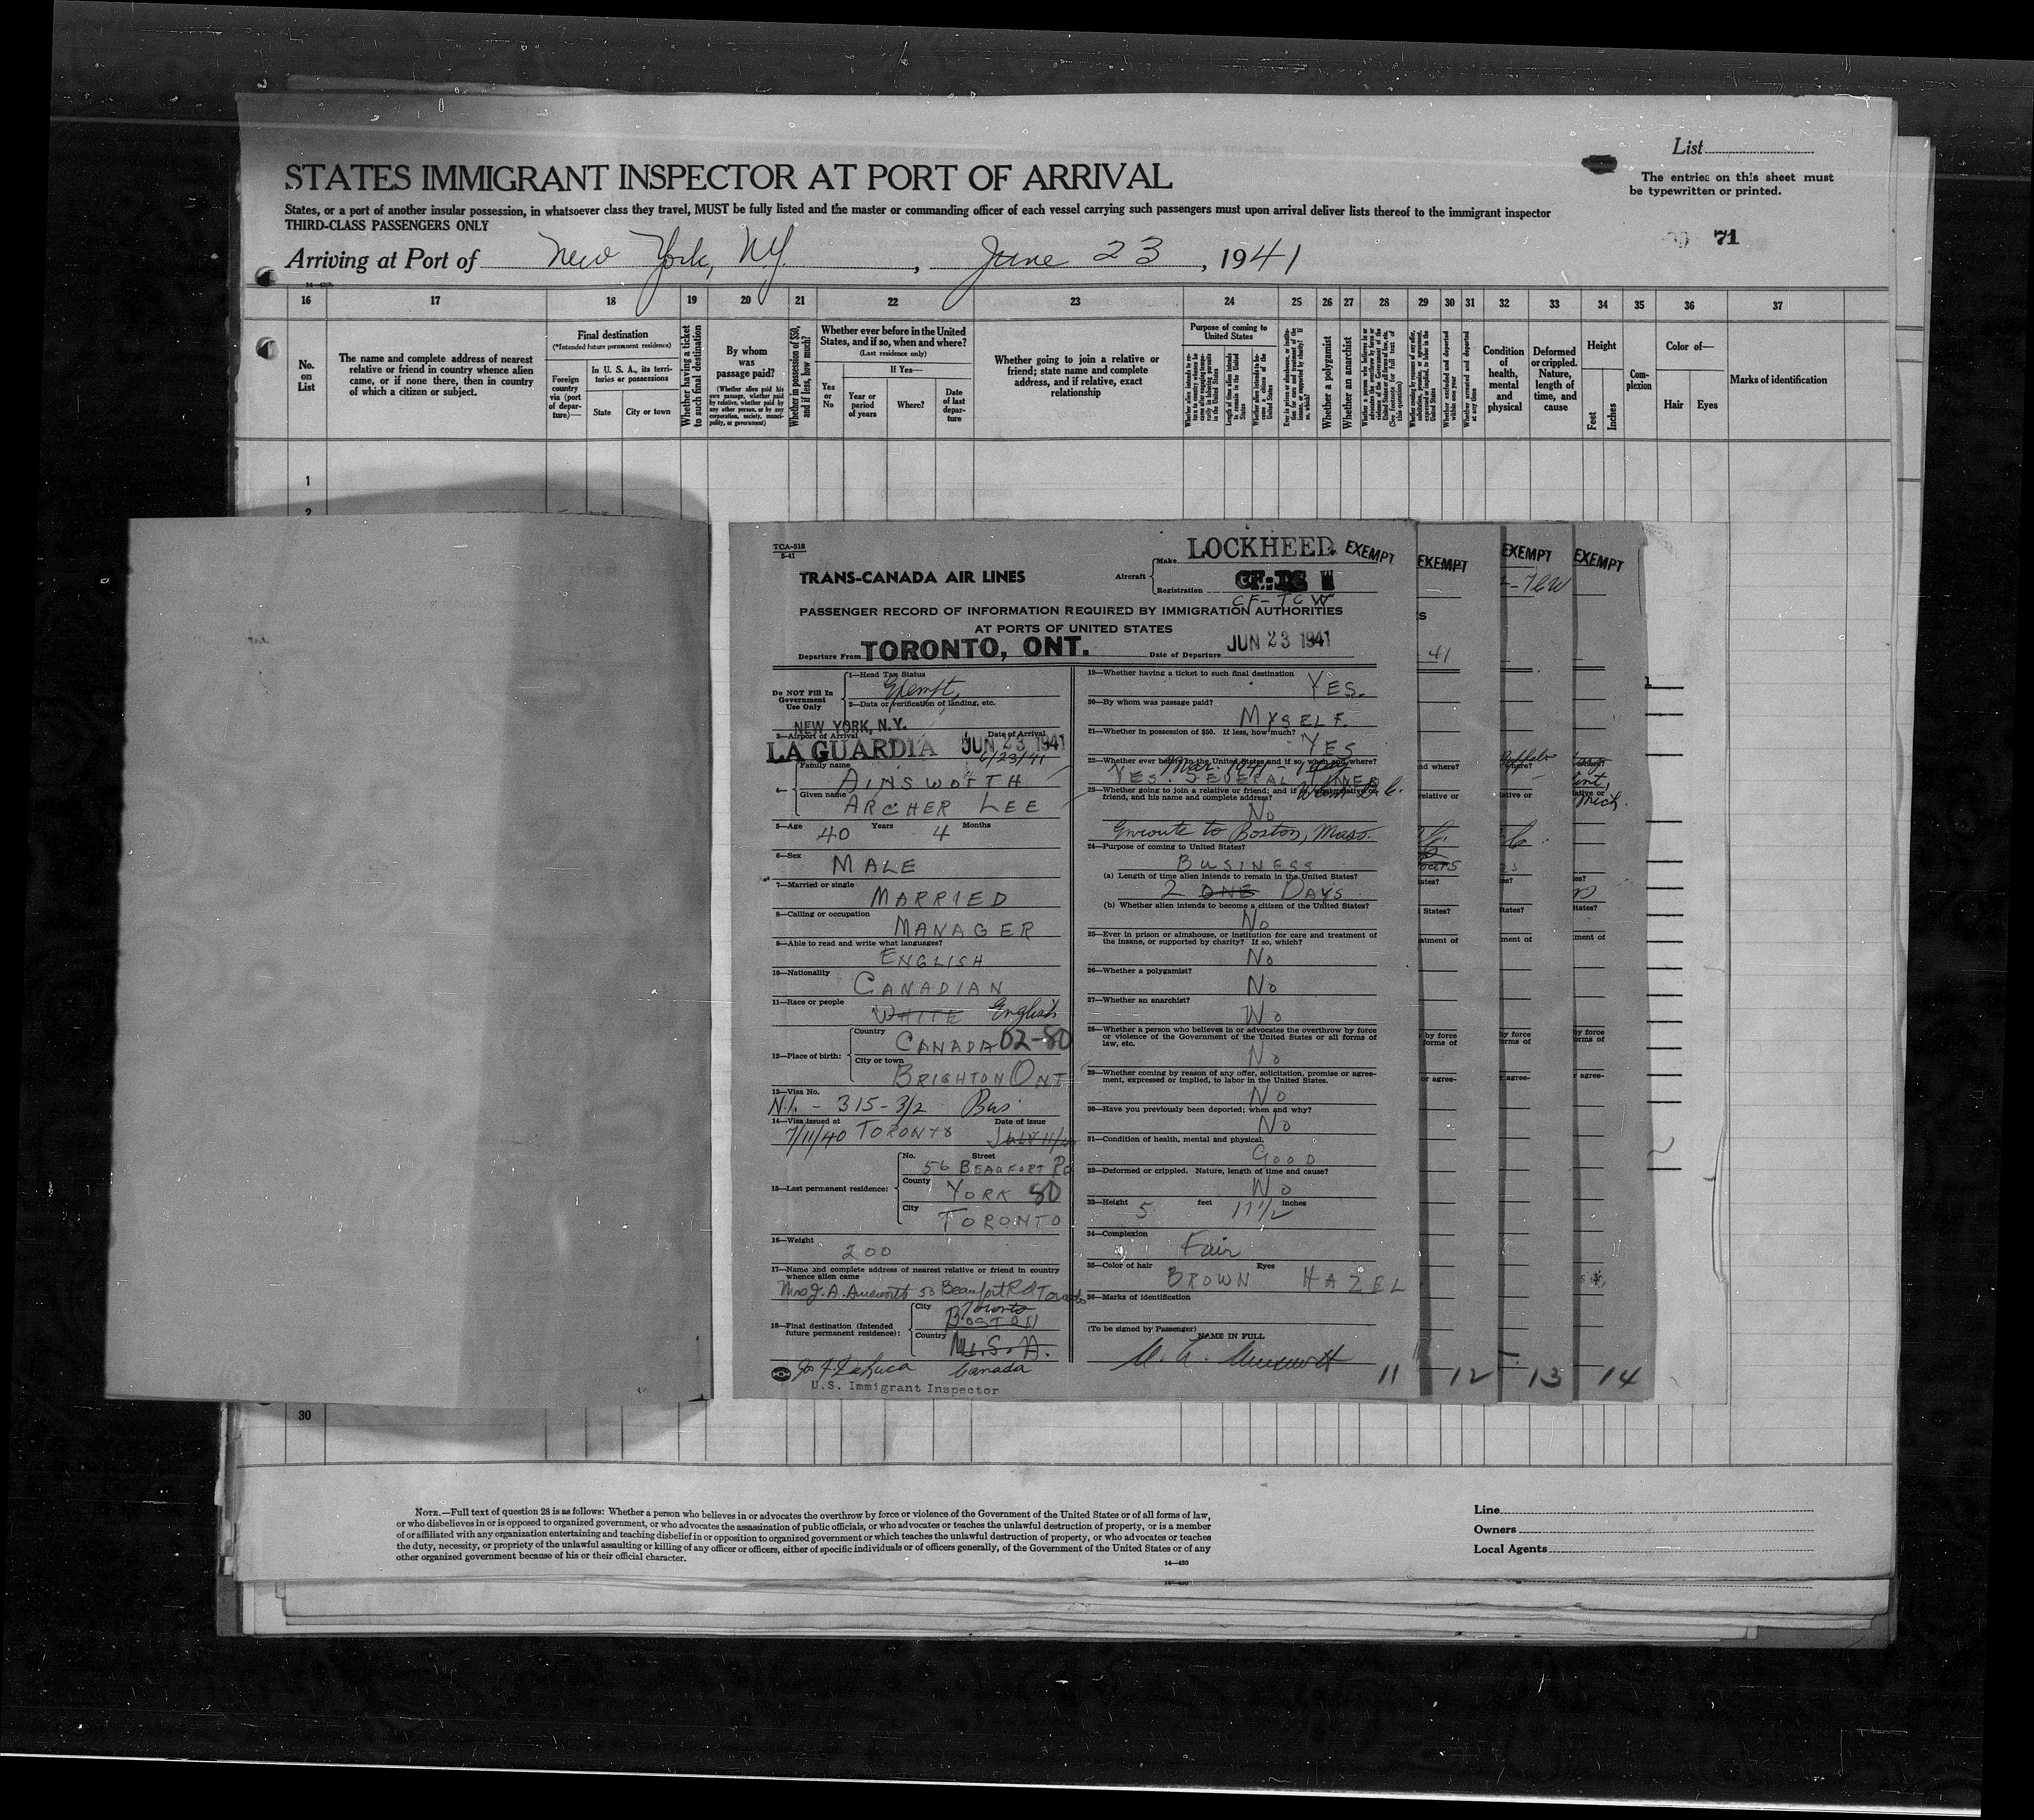 List
The entries on this sheet must
be typewritten or printed.
STATES IMMIGRANT INSPECTOR AT PORT OF ARRIVAL
States, or a port of another insular possession, in whatsoever class they travel, MUST be fully listed and the master or commanding officer of each vessel carrying such passengers must upon arrival deliver lists thereof to the immigrant inspector
THIRD-CLASS PASSENGERS ONLY
71
Arriving at Port of New York, N.Y. , June 23 , 1941
16 17 18 19 20 21 22 23 24 25 26 27 28 29 30 31 32 33 34 35 36 37
No. on List
The name and complete address of nearest relative or friend in country whence alien came, or if none there, then in country of which a citizen or subject.
Final destination
(*Intended future permanent residence)
Foreign country via (port of departure)—
In U. S. A., its territories or possessions
State
City or town
Whether having a ticket to such final destination
By whom was passage paid?
(Whether alien paid his own passage, whether paid by relative, whether paid by any other person, or by any corporation, society, municipality, or government)
Whether in possession of $50, and if less, how much?
Whether ever before in the United States, and if so, when and where?
(Last residence only)
Yes or No
If Yes—
Year or period of years
Where?
Date of last departure
Whether going to join a relative or friend; state name and complete address, and if relative, exact relationship
Purpose of coming to United States
Length of time alien intends to remain in the United States
Whether a polygamist
Whether an anarchist
Condition of health, mental and physical
Deformed or crippled. Nature, length of time, and cause
Height
Feet
Inches
Complexion
Color of—
Hair
Eyes
Marks of identification
1
2
TCA-518
5-41
TRANS-CANADA AIR LINES
Aircraft
Make LOCKHEED EXEMPT
Registration
CF-TCW
PASSENGER RECORD OF INFORMATION REQUIRED BY IMMIGRATION AUTHORITIES
AT PORTS OF UNITED STATES
Departure From TORONTO, ONT. Date of Departure JUN 23 1941
Do NOT Fill In
Government
Use Only
1—Head Tax Status
Exempt
2—Data or verification of landing, etc.
NEW YORK, N.Y.
3—Airport of Arrival Date of Arrival
LA GUARDIA JUN 23 1941
6/23/41
4— Family name AINSWORTH
Given name ARCHER LEE
5—Age 40 Years 4 Months
6—Sex
MALE
7—Married or single
MARRIED
8—Calling or occupation
MANAGER
9—Able to read and write what languages?
ENGLISH
10—Nationality
CANADIAN
11—Race or people
WHITE English
12—Place of birth: Country
CANADA 02-80
City or town
BRIGHTON ONT
13—Visa No.
N.I. - 315-3/2 Bus.
14—Visa issued at Date of issue
7/11/40 TORONTO JULY 11/40
15—Last permanent residence: No. Street
56 BEAUFORT RD
County
YORK 80
City
TORONTO
16—Weight
200
17—Name and complete address of nearest relative or friend in country
whence alien came
Mrs J. A. Ainsworth 50 Beaufort Rd Toronto
18—Final destination (Intended
future permanent residence): City
Toronto
BOSTON
Country U.S.A.
Canada
U.S. Immigrant Inspector
19—Whether having a ticket to such final destination
YES.
20—By whom was passage paid?
MYSELF.
21—Whether in possession of $50. If less, how much?
YES
22—Whether ever before in the United States and if so, when and where?
Mar. 1941 - 1 day
YES. SEVERAL TIMES
23—Whether going to join a relative or friend; and if so, what relative or
friend, and his name and complete address?
No
Enroute to Boston, Mass.
24—Purpose of coming to United States?
BUSINESS
(a) Length of time alien intends to remain in the United States?
2 ONE DAYS
(b) Whether alien intends to become a citizen of the United States?
No
25—Ever in prison or almshouse, or institution for care and treatment of
the insane, or supported by charity? If so, which?
No
26—Whether a polygamist?
No
27—Whether an anarchist?
No
28—Whether a person who believes in or advocates the overthrow by force
or violence of the Government of the United States or all forms of
law, etc.
No
29—Whether coming by reason of any offer, solicitation, promise or agree-
ment, expressed or implied, to labor in the United States.
No
30—Have you previously been deported; when and why?
No
31—Condition of health, mental and physical.
GOOD
32—Deformed or crippled. Nature, length of time and cause?
No
33—Height 5 feet 11 1/2 inches
34—Complexion
Fair
35—Color of hair Eyes
BROWN HAZEL
36—Marks of identification
(To be signed by Passenger) NAME IN FULL
11 12 13 14
EXEMPT
EXEMPT
EXEMPT
30
NOTE.—Full text of question 28 is as follows: Whether a person who believes in or advocates the overthrow by force or violence of the Government of the United States or of all forms of law,
or who disbelieves in or is opposed to organized government, or who advocates the assassination of public officials, or who advocates or teaches the unlawful destruction of property, or is a member
of or affiliated with any organization entertaining and teaching disbelief in or opposition to organized government or which teaches the unlawful destruction of property, or who advocates or teaches
the duty, necessity, or propriety of the unlawful assaulting or killing of any officer or officers, either of specific individuals or of officers generally, of the Government of the United States or of any
other organized government because of his or their official character.
14—430
Line
Owners
Local Agents